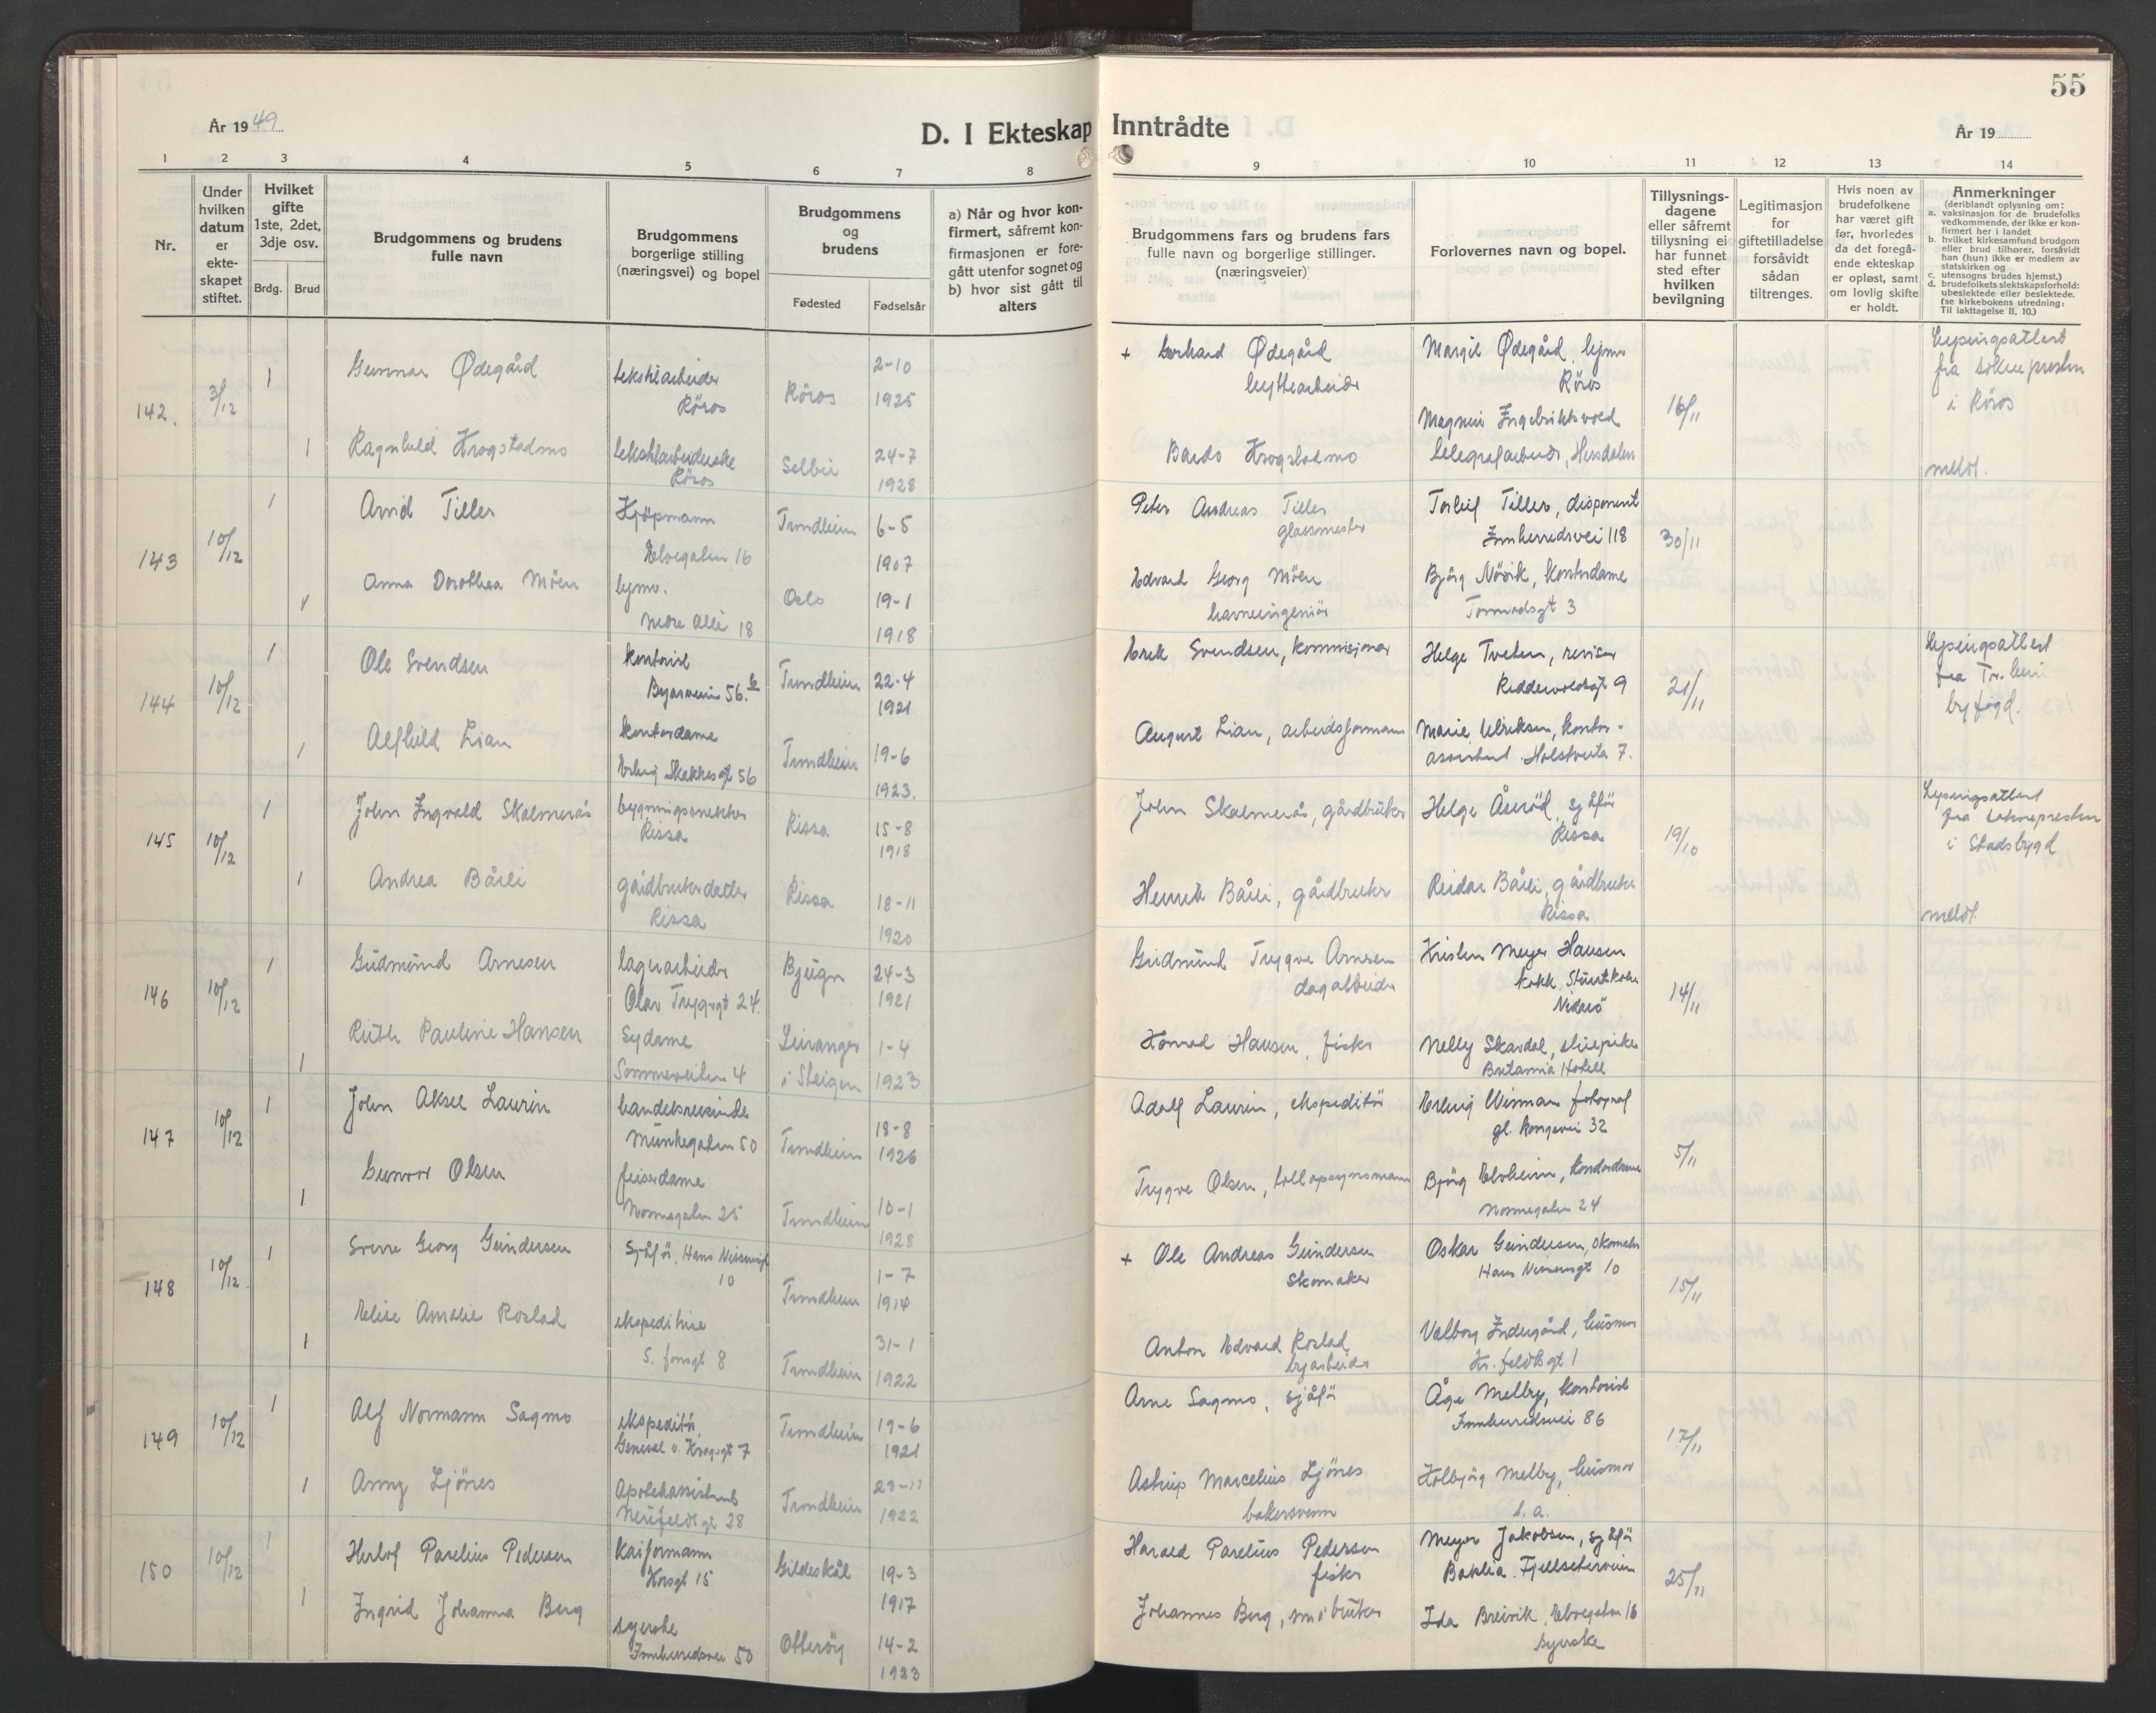 55
År 1949
D. I Ekteskap Inntrådte
År 19
1 2 3 4 5 6 7 8 9 10 11 12 13 14
Nr.
Under hvilken datum er ekteskapet stiftet.
Hvilket gifte 1ste, 2det, 3dje osv.
Brdg. Brud
Brudgommens og brudens fulle navn
Brudgommens borgerlige stilling (næringsvei) og bopel
Brudgommens og brudens
Fødested Fødselsår
a) Når og hvor konfirmert, såfremt konfirmasjonen er foregått utenfor sognet og
b) hvor sist gått til alters
Brudgommens fars og brudens fars fulle navn og borgerlige stillinger. (næringsveier)
Forlovernes navn og bopel.
Tillysningsdagene eller såfremt tillysning ei har funnet sted efter hvilken bevilgning
Legitimasjon for giftetilladelse forsåvidt sådan tiltrenges.
Hvis noen av brudefolkene har været gift før, hvorledes da det foregående ekteskap er opløst, samt om lovlig skifte er holdt.
Anmerkninger
(deriblandt oplysning om:
a. vaksinasjon for de brudefolks vedkommende, der ikke er konfirmert her i landet
b. hvilket kirkesamfund brudgom eller brud tilhører, forsåvidt han (hun) ikke er medlem av statskirken og
c. utensogns brudes hjemst.)
d. brudefolkets slektskapsforhold: ubeslektede eller beslektede. (se kirkebokens utredning: Til iakttagelse II, 10.)
142. 3/12 1 Gunnar Ødegård tekstilarbeider Röros Röros 2-10 1925 + Gerhard Ødegård hyttearbeider Margit Ødegård, hjmv Röros 16/11 Lysingsattest fra soknepresten i Röros
1 Ragnhild Krogstadmo tekstilarbeiderske Röros Selbu 24-7 1928 Bardo Krogstadmo Magnus Ingebriktsvold telegrafarbeider, Hessdalen meldt.
143 10/12 1 Arvid Tiller Kjöpmann Elvegaten 16 Trondheim 6-5 1907 Peter Andreas Tiller glassmester Torleif Tiller, disponent Innherredsvei 118 30/11
1 Anna Dorothea Möen hjmv. Nedre Allé 18 Oslo 19-1 1918 Edvard Georg Möen havneingeniör Björg Növik, kontordame Tormodsgt 3
144 10/12 1 Ole Svendsen kontorist Byåsveien 56.b Trondheim 22-4 1921 Erik Svendsen, kommisjonær Helge Tveten, revisor Ridderwoldsgt 9 21/11 Lysingsattest fra Tr.heim byfogd.
1 Alfhild Lian kontordame Erling Skakkes gt 56 Trondheim 19-6 1923. August Lian, arbeidsformann Marie Ulriksen, kontorassistent Holstveita 7.
145 10/12 1 John Ingvald Skalmerås bygningssnekker Rissa Rissa 15-8 1918 John Skalmerås, gårdbruker Helge Åseröd, sjåför Rissa 19/10 Lysingsattest fra soknepresten i Stadsbygd
1 Andrea Bårli gårdbrukerdatter Rissa Rissa 18-11 1920 Henrik Bårli, gårdbruker Reidar Bårli, gårdbruker Rissa meldt.
146 10/12 1 Gudmund Arnesen lagerarbeider Olav Trygvgt 24. Bjugn 24-3 1921 Gudmund Trygve Arnesen dagarbeider Kristen Meyer Hansen kokk, Nidarö 14/11
1 Ruth Pauline Hansen sydame Sommerveiten 4 Leiranger i Steigen 1-4 1923 Konrad Hansen, fisker Nelly Skardal, Britannia Hotell
147 10/12 1 John Aksel Laurin handelsreisende Munkegaten 50 Trondheim 18-8 1926 Adolf Laurin, ekspeditör Erling Wisman fotograf gl. Kongevei 32 5/11
1 Gunvor Olsen frisördame Nonnegaten 25 Trondheim 10-1 1928 Trygve Olsen, tollopsynsmann Björg Elvheim, kontordame Nonnegaten 24
148 10/12 1 Sverre Georg Gundersen Sjåför, Hans Nissensgt 10 Trondheim 1-7 1914 + Ole Andreas Gundersen Skomaker Oskar Gundersen, skomaker Hans Nissensgt 10 15/11
1 Elise Amalie Rostad ekspeditrise 8 Trondheim 31-1 1922 Anton Edvard Rostad byarbeider Valborg Indergård, husmor Kr. feldtsgt 1
149 10/12 1 Alf Normann Sagmo ekspeditör, General v. Krogsgt 7 Trondheim 19-6 1921 Arne Sagmo, sjåför Åge Melby, kontorist Innherredsvei 86 17/11
1 Anny Ljönes Apotekassistent Neufeldts gt 28 Trondheim 28-11 1922 Astrup Marcelius Ljönes bakersvenn Kolbjörg Melby, husmor s. a.
150 10/12 1 Herlof Parelius Pedersen Kaiformann Korsgt 15 Gildeskål 19-3 1917 Harald Parelius Pedersen fisker Meyer Jakobsen, sjåför Baklia. Fjellseterveien 25/11
1 Ingrid Johanna Berg syerske Innherredsvei 50 Otteröy 14-2 1923 Johannes Berg, småbruker Ida Breivik, Elvegaten 16 syerske